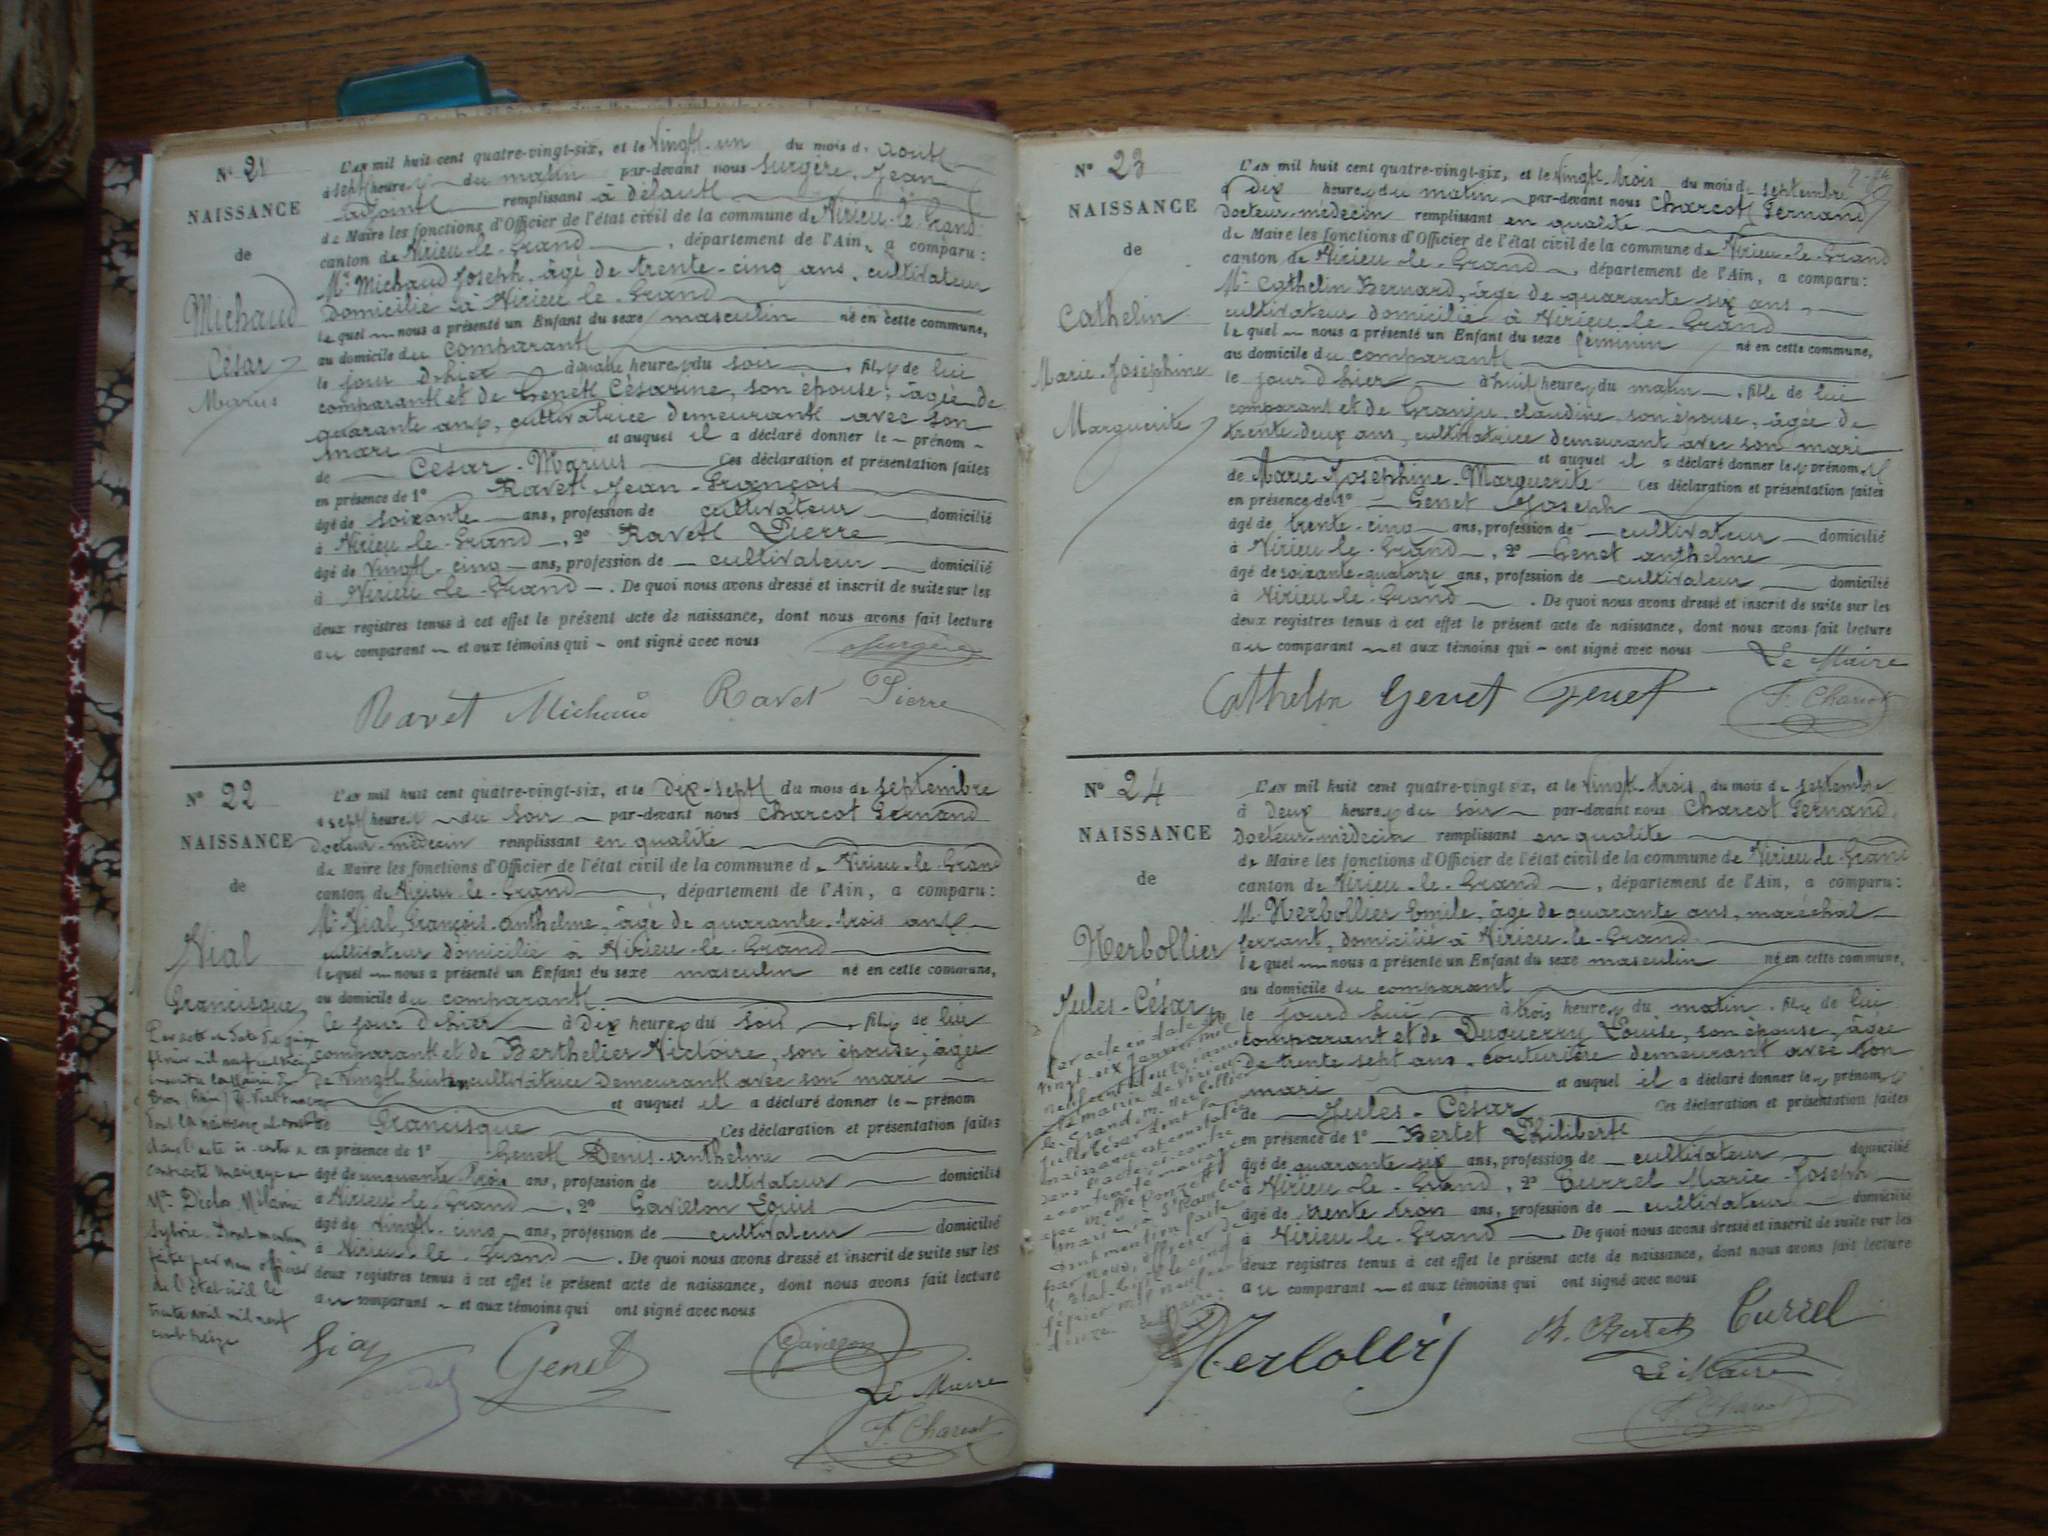 N° 21
NAISSANCE
de
Michaud
César
Marius
L'AN mil huit cent quatre-vingt-six, et le vingt-un du mois d'aout
à sept heures du matin par-devant nous Surgère, Jean
adjoint remplissant à défaut
de Maire les fonctions d'Officier de l'état civil de la commune de Virieu-le-Grand
canton de Virieu-le-Grand, département de l'Ain, a comparu :
Mr Michaud Joseph, âgé de trente-cinq ans, cultivateur
domicilié à Virieu-le-Grand
lequel nous a présenté un Enfant du sexe masculin né en cette commune,
au domicile du comparant
le jour d'hier à heures du soir, fils de lui
comparant et de Genet Césarine, son épouse, âgée de
quarante ans, cultivatrice demeurant avec son
mari et auquel il a déclaré donner le prénom
de César-Marius Ces déclaration et présentation faites
en présence de 1° Ravet Jean-François
âgé de soixante ans, profession de cultivateur domicilié
à Virieu-le-Grand, 2° Ravet Pierre
âgé de vingt-cinq ans, profession de cultivateur domicilié
à Virieu-le-Grand. De quoi nous avons dressé et inscrit de suite sur les
deux registres tenus à cet effet le présent acte de naissance, dont nous avons fait lecture
au comparant et aux témoins qui ont signé avec nous
Surgère
Ravet Michaud Ravet Pierre
N° 22
NAISSANCE
de
Vial
Francisque
contracté mariage
Mlle Déclo Mélanie
Sylvie. Dont mention
faite par nous officier
de l'état civil le
trente avril mil neuf
cent treize
L'AN mil huit cent quatre-vingt-six, et le dix-sept du mois de septembre
à sept heures du soir par-devant nous Charcot Fernand
docteur-médecin remplissant en qualité
de Maire les fonctions d'Officier de l'état civil de la commune de Virieu-le-Grand
canton de Virieu-le-Grand, département de l'Ain, a comparu :
Mr Vial, François-Anthelme, âgé de quarante-trois ans
cultivateur domicilié à Virieu-le-Grand
lequel nous a présenté un Enfant du sexe masculin né en cette commune,
au domicile du comparant
le jour d'hier à dix heures du soir, fils de lui
comparant et de Berthelier Victoire, son épouse, âgée
de vingt huit ans cultivatrice demeurant avec son mari
et auquel il a déclaré donner le prénom
de Francisque Ces déclaration et présentation faites
en présence de 1° Genet Denis-Anthelme
âgé de cinquante trois ans, profession de cultivateur domicilié
à Virieu-le-Grand, 2° Gavillon Louis
âgé de vingt-cinq ans, profession de cultivateur domicilié
à Virieu-le-Grand. De quoi nous avons dressé et inscrit de suite sur les
deux registres tenus à cet effet le présent acte de naissance, dont nous avons fait lecture
au comparant et aux témoins qui ont signé avec nous
Genet Gavillon
Le Maire
F. Charcot
N° 23
NAISSANCE
de
Cathelin
Marie-Joséphine
Marguerite
L'AN mil huit cent quatre-vingt-six, et le vingt-trois du mois de septembre
à dix heures du matin par-devant nous Charcot Fernand
docteur-médecin remplissant en qualité
de Maire les fonctions d'Officier de l'état civil de la commune de Virieu-le-Grand
canton de Virieu-le-Grand, département de l'Ain, a comparu :
Mr Cathelin Bernard, âgé de quarante six ans,
cultivateur domicilié à Virieu-le-Grand
lequel nous a présenté un Enfant du sexe féminin né en cette commune,
au domicile du comparant
le jour d'hier à huit heures du matin, fille de lui
comparant et de Granju Claudine son épouse, âgée de
trente-deux ans, cultivatrice demeurant avec son mari
et auquel il a déclaré donner les prénoms
de Marie Joséphine-Marguerite Ces déclaration et présentation faites
en présence de 1° Genet Joseph
âgé de trente-cinq ans, profession de cultivateur domicilié
à Virieu-le-Grand, 2° Genet Anthelme
âgé de soixante-quatorze ans, profession de cultivateur domicilié
à Virieu-le-Grand. De quoi nous avons dressé et inscrit de suite sur les
deux registres tenus à cet effet le présent acte de naissance, dont nous avons fait lecture
au comparant et aux témoins qui ont signé avec nous
Le Maire
Cathelin Genet Genet F. Charcot
N° 24
NAISSANCE
de
Herbollier
Jules-César
Par acte en date du
vingt-six janvier mil
L'AN mil huit cent quatre-vingt-six, et le vingt-trois du mois de septembre
à deux heures du soir par-devant nous Charcot Fernand
docteur-médecin remplissant en qualité
de Maire les fonctions d'Officier de l'état civil de la commune de Virieu-le-Grand
canton de Virieu-le-Grand, département de l'Ain, a comparu :
M. Herbollier Emile, âgé de quarante ans, maréchal
ferrant, domicilié à Virieu-le-Grand
lequel nous a présenté un Enfant du sexe masculin né en cette commune,
au domicile du comparant
le jourd'hui, à trois heures du matin, fils de lui
comparant et de Duguerry Louise, son épouse, âgée
de trente sept ans, couturière demeurant avec son
mari et auquel il a déclaré donner les prénoms
de Jules-César Ces déclaration et présentation faites
en présence de 1° Bertet Philibert
âgé de quarante six ans, profession de cultivateur domicilié
à Virieu-le-Grand, 2° Turrel Marie-Joseph
âgé de trente trois ans, profession de cultivateur domicilié
à Virieu-le-Grand De quoi nous avons dressé et inscrit de suite sur les
deux registres tenus à cet effet le présent acte de naissance, dont nous avons fait lecture
au comparant et aux témoins qui ont signé avec nous
Ph. Bertet Turrel
Le Maire
F. Charcot